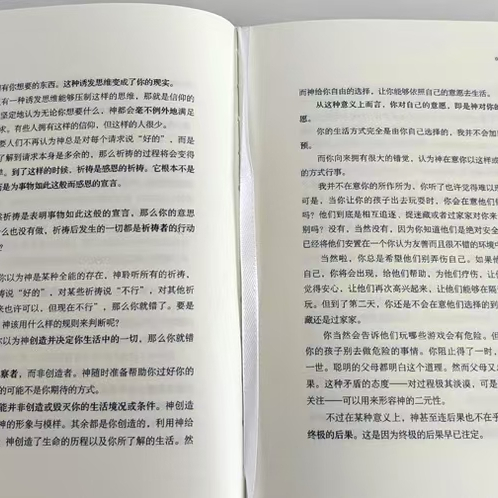 有你想要的东西。这种诱发思维变成了你的现实。
有一种诱发思维能够压制这样的思维，那就是信仰的
坚定地认为无论你想要什么，神都会毫不例外地满足
求。有些人拥有这样的信仰，但这样的人很少。
要人们不再认为神总是对每个请求说“好的”，而是
到了解到请求本身是多余的，那么祈祷的过程将会变得
得。到了这样的时候，祈祷是感恩的祈祷。它根本不是
而是为事物如此这般而感恩的宣言。
祈祷是表明事物如此这般的宣言，那么你的意思
什么也没有做，祈祷后发生的一切都是祈祷者的行动
？
你以为神是某种全能的存在，神聆听所有的祈祷，
祈祷说“好的”，对某些祈祷说“不行”，对其他祈
来也许可以，但现在不行”，那么你就错了。要是
，神该用什么样的规则来判断呢？
你以为神创造并决定你生活中的一切，那么你就错
察者，而非创造者。神随时准备帮助你过好你的
的可能不是你期待的方式。
能并非创造或毁灭你的生活境况或条件。神创造
神的形象与模样。其余都是你创造的，利用神给
。神创造了生命的历程以及你所了解的生活。然
而神给你自由的选择，让你能够依照自己的意愿去生活。
从这种意义上而言，你对自己的意愿，即是神对你的
愿。
你的生活方式完全是由你自己选择的，我并不会加
预。
而你向来拥有很大的错觉，认为神在意你以这样或
的方式行事。
我并不在意你的所作所为，你听了也许觉得难以
可是，当你让你的孩子出去玩耍时，你会在意他们
吗？他们到底是相互追逐、捉迷藏或者过家家对你来
别吗？没有，当然没有，因为你知道他们是绝对安全
已经将他们安置在一个你认为友善而且很不错的环境
当然啦，你总是希望他们别弄伤自己。如果他
自己，你将会出现，给他们帮助，为他们疗伤，让他
觉得安心，让他们再次高兴起来，让他们能够在隔
玩。但到了第二天，你还是不会在意他们选择的到
藏还是过家家。
你当然会告诉他们玩哪些游戏会有危险。但
你的孩子别去做危险的事情。你阻止得了一时，
一世。聪明的父母都明白这个道理。然而父母又
果。这种矛盾的态度——对过程极其淡漠，可是
关注——可以用来形容神的二元性。
不过在某种意义上，神甚至连后果也不在乎
终极的后果。这是因为终极的后果早已注定。